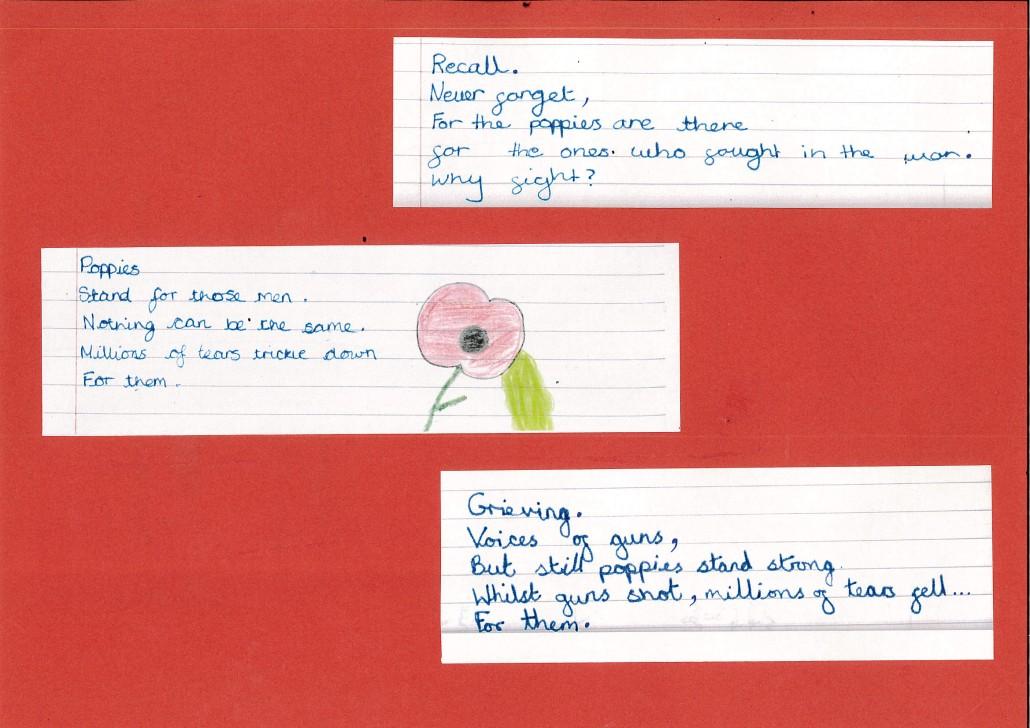 Recall.
Never forget,
For the poppies are there
for the ones. who fought in the war.
why fight?
Poppies
Stand for those men.
Nothing can be the same.
Millions of tears trickle down
For them.
Grieving.
Voices of guns,
But still poppies stand strong.
Whilst guns shot, millions of tears fell...
For them.